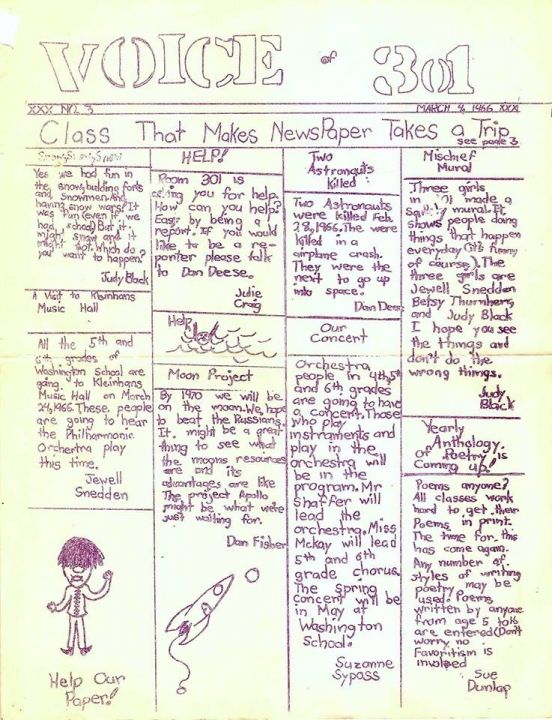 VOICE of 301
XXX NO. 3 MARCH 8, 1966 XXX
Class That Makes NewsPaper Takes a Trip
see page 3
Snow, Snow, Snow!
Yes we had fun in
the snow, building forts
and snowmen. And
having snow wars! It
was fun (even if we
had school) But it
might snow and it
might not. Which do
you want to happen?
Judy Black
A Visit to Kleinhans
Music Hall
All the 5th and
6th grades of
Washington School are
going to Kleinhans
Music Hall on March
24, 1966. These people
are going to hear
the Philharmonic
Orchertra play
this time.
Jewell
Snedden
Help Our
Paper!
HELP!
Room 301 is
asking you for help.
How can you help?
Easy by being a
report. If you would
like to be a re-
porter please talk
to Dan Deese.
Julie
Craig
Help
Moon Project
By 1970 we will be
on the moon. We hope
to beat the Russians.
It might be a great
thing to see what
the moons resources
are and its
advantages are like
The project Apollo
might be what we're
just waiting for.
Dan Fisher
Two
Astronauts
Killed
Two Astronauts
were killed Feb.
28, 1966. The were
killed in a
airplane crash.
They were the
next to go up
into space.
Dan Deese
Our
Concert
Orchestra
people in 4th, 5th
and 6th grades
are going to have
a concert. Those
who play
instraments and
play in the
orchestra will
be in the
program. Mr
Shaffer will
lead the
orchestra, Miss
McKay will lead
5th and 6th
grade chorus.
The spring
concert will be
in May at
Washington
School.
Suzanne
Syposs
Mischief
Mural
Three girls
in 301 made a
mural. It
shows people doing
things that happen
everyday (it's funny
of course). The
three girls are
Jewell Snedden
Betsy Thurnherr,
and Judy Black
I hope you see
the things and
don't do the
wrong things.
Judy
Black
Yearly
Anthology
of Poetry is
Coming up!
Poems anyone?
All classes work
hard to get their
Poems in print.
The time for this
has come again.
Any number of
styles of writing
poetry may be
used. Poems
written by anyone
from age 5 to 16
are entered (Don't
worry no
Favoritism is
involved
Sue
Dunlap